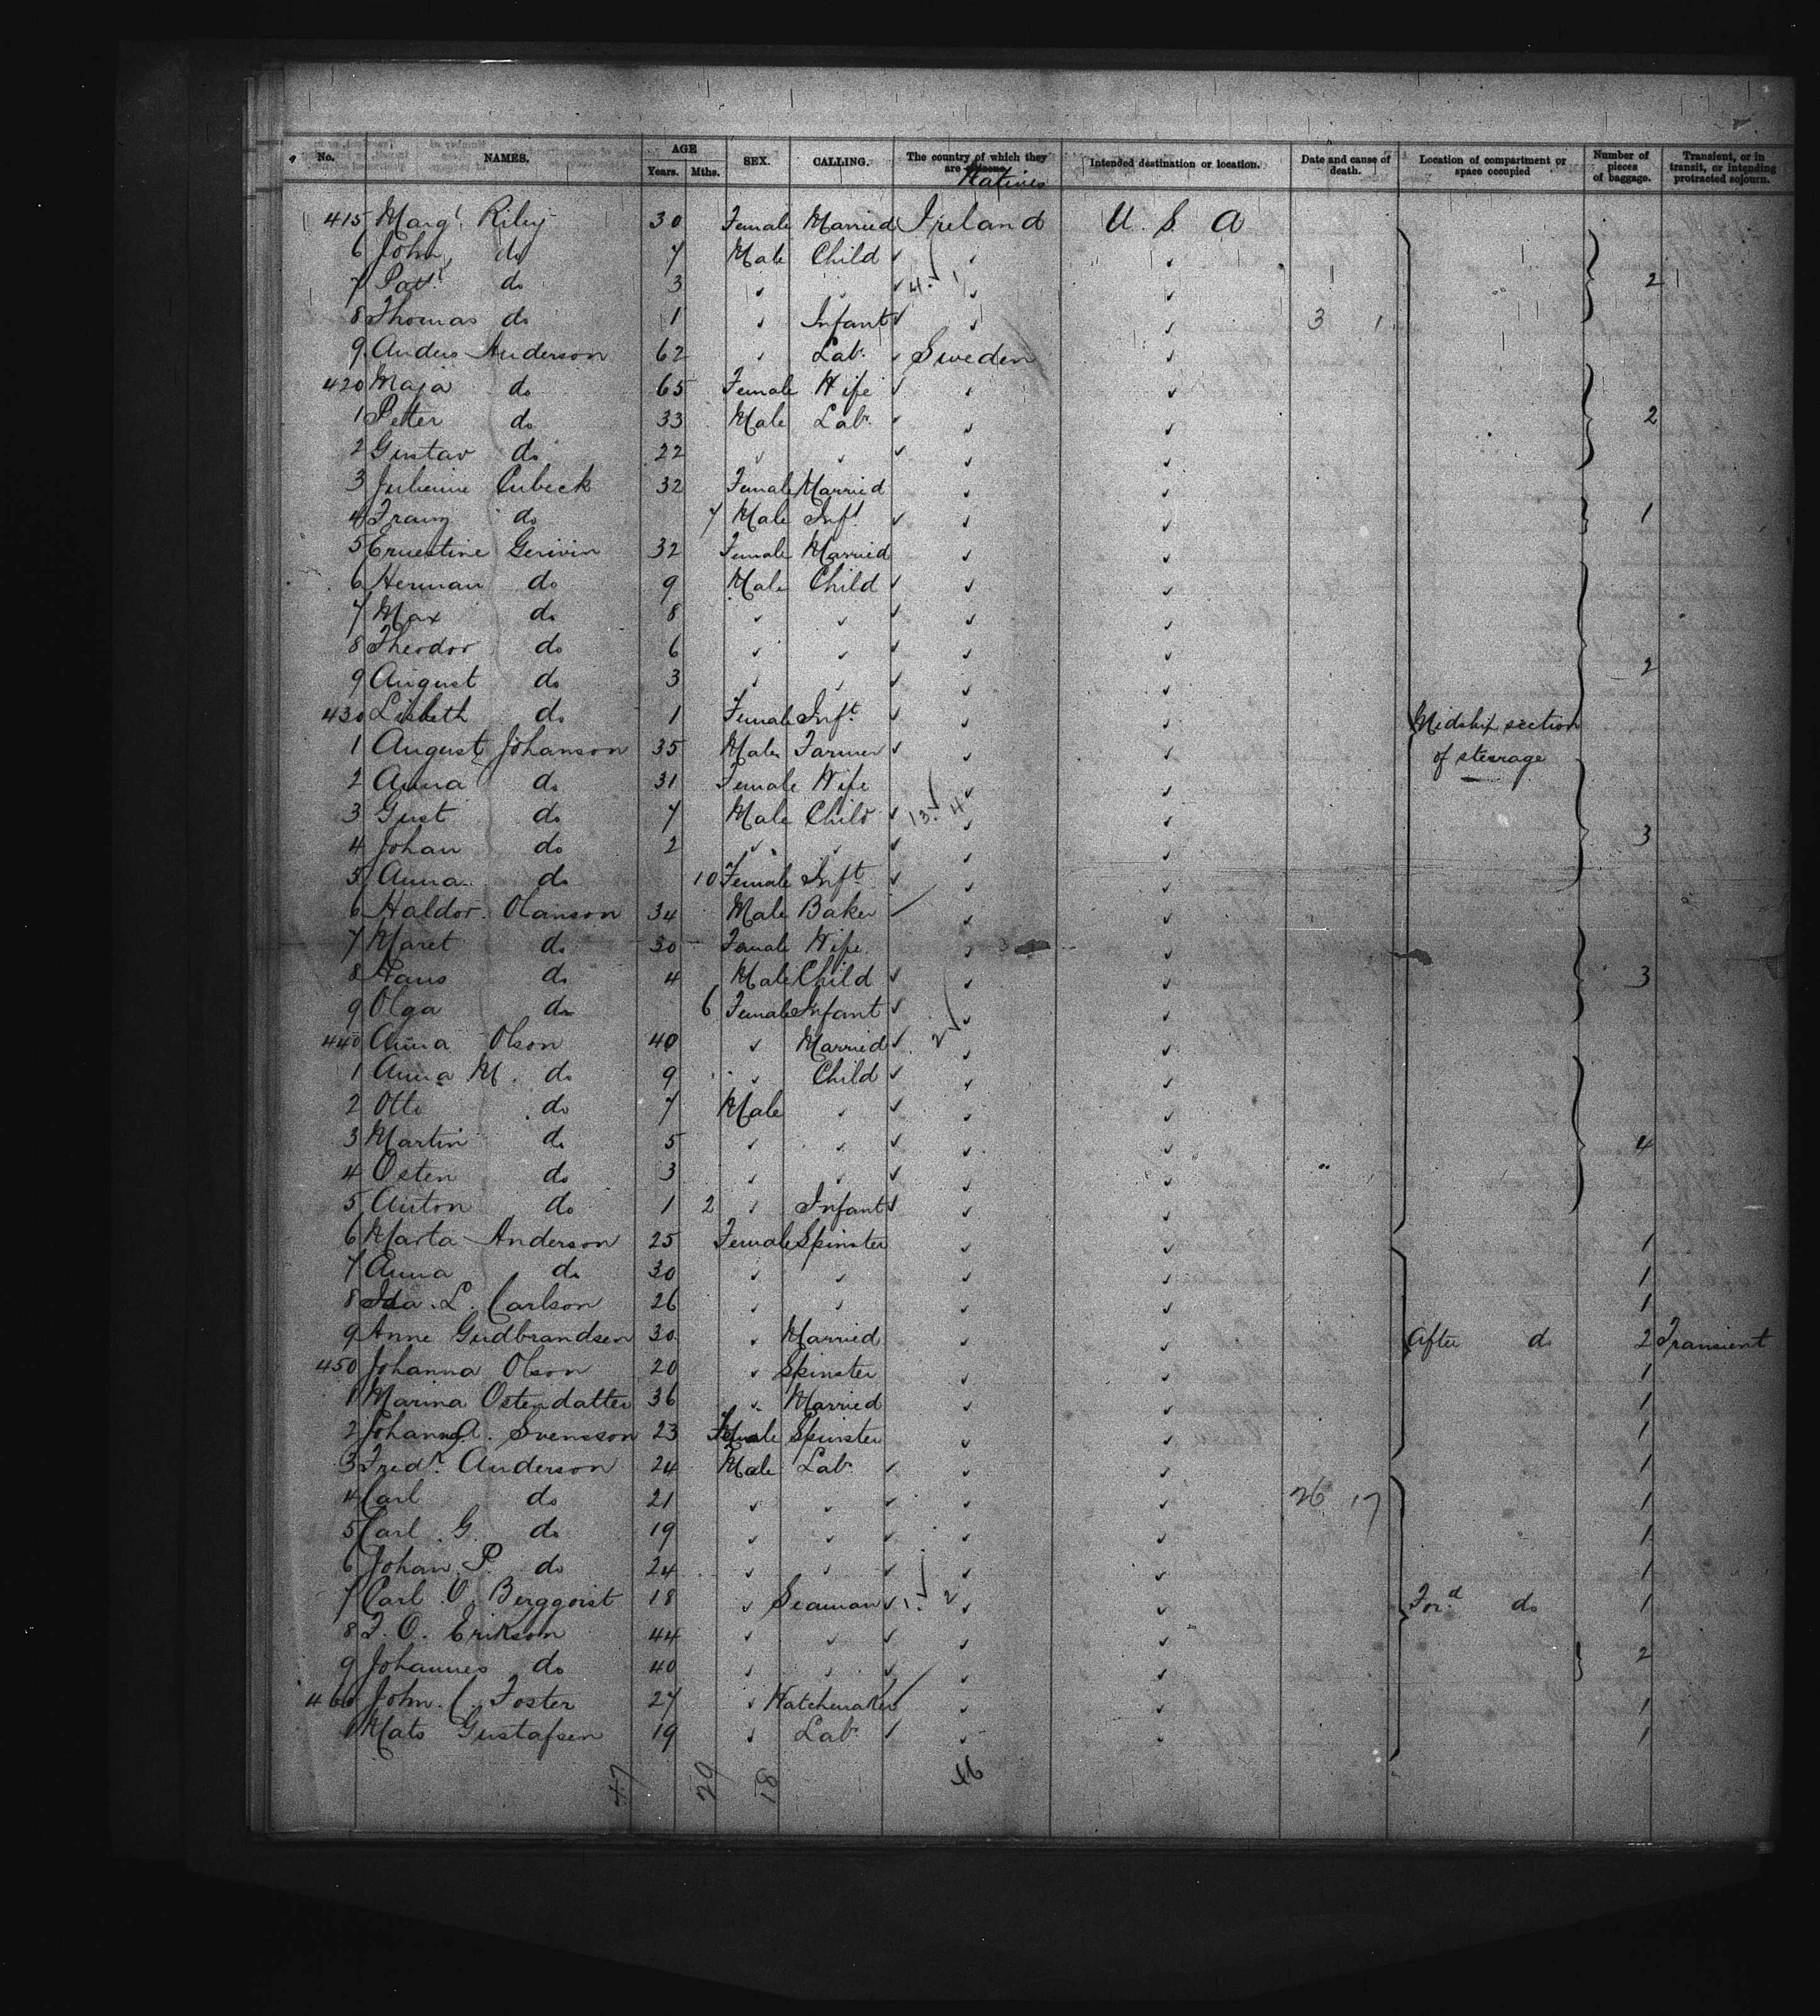 No. NAMES. AGE Years. Mths. SEX. CALLING. The country of which they are citizens. Natives Intended destination or location. Date and cause of death. Location of compartment or space occupied Number of pieces of baggage. Transient, or in transit, or intending protracted sojourn.
415 Margt Riley 30 Female Married Ireland U. S. A
6 John do 7 Male Child ✓ ✓ ✓
7 Patk do 3 ✓ ✓ ✓ 4. ✓ ✓ 2
8 Thomas do 1 ✓ Infant ✓ ✓ ✓ 3 1
9 Anders Anderson 62 ✓ Labr ✓ Sweden ✓
420 Maja do 65 Female Wife ✓ ✓ ✓
1 Peter do 33 Male Labr ✓ ✓ ✓ 2
2 Gustav do 22 ✓ ✓ ✓ ✓ ✓
3 Julienne Cubeck 32 Female Married ✓ ✓
4 Franz do 7 Male Inft ✓ ✓ ✓ 1
5 Ernestine Gerivin 32 Female Married ✓ ✓
6 Herman do 9 Male Child ✓ ✓ ✓
7 Max do 8 ✓ ✓ ✓ ✓ ✓
8 Theodor do 6 ✓ ✓ ✓ ✓ ✓ 2
9 August do 3 ✓ ✓ ✓ ✓ ✓
430 Lisbeth do 1 Female Inft ✓ ✓ ✓ Midship section
1 August Johanson 35 Male Farmer ✓ ✓ ✓ of steerage
2 Anna do 31 Female Wife ✓ ✓
3 Gust do 7 Male Child ✓ 13. 4 ✓ ✓
4 Johan do 2 ✓ ✓ ✓ ✓ ✓ 3
5 Anna do 10 Female Inft ✓ ✓ ✓
6 Haldor Olanson 34 Male Baker ✓ ✓
7 Maret do 30 Female Wife ✓ ✓
8 Hans do 4 Male Child ✓ ✓ ✓ 3
9 Olga do 6 Female Infant ✓ ✓ ✓
440 Anna Olson 40 ✓ Married ✓ 2 ✓ ✓
1 Anna M. do 9 ✓ Child ✓ ✓ ✓
2 Otto do 7 Male ✓ ✓ ✓ ✓
3 Martin do 5 ✓ ✓ ✓ ✓ ✓ 4
4 Osten do 3 ✓ ✓ ✓ ✓ ✓
5 Anton do 1 2 ✓ Infant ✓ ✓ ✓
6 Marta Anderson 25 Female Spinster ✓ ✓ 1
7 Anna do 30 ✓ ✓ ✓ ✓ 1
8 Ida. L. Carlson 26 ✓ ✓ ✓ ✓ 1
9 Anne Gudbrandsen 30 ✓ Married ✓ ✓ After do 2 Transient
450 Johanna Olson 20 ✓ Spinster ✓ ✓ 1
1 Marina Ostendatter 36 ✓ Married ✓ ✓ 1
2 Johanna A. Svensson 23 Female Spinster ✓ ✓ 1
3 Fredk Anderson 24 Male Labr ✓ ✓ ✓ 1
4 Carl do 21 ✓ ✓ ✓ ✓ ✓ 26 17 1
5 Carl G. do 19 ✓ ✓ ✓ ✓ ✓ 1
6 Johan P. do 24 ✓ ✓ ✓ ✓ ✓ 1
7 Carl O. Bergqvist 18 ✓ Seaman ✓ 1. 2 ✓ ✓ Ford do 1
8 F. O. Erikson 44 ✓ ✓ ✓ ✓ ✓
9 Johannes do 40 ✓ ✓ ✓ ✓ ✓ 2
460 John. C. Foster 27 ✓ Watchmaker ✓ ✓ 1
1 Mats Gustafsen 19 ✓ Labr ✓ ✓ ✓ 1
47 29 18 46